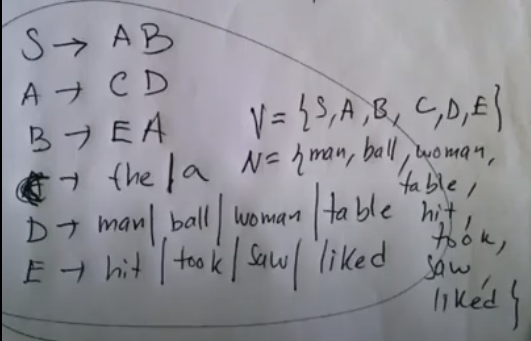 S → A B
A → C D
B → E A
C → the | a
D → man | ball | woman | table
E → hit | took | saw | liked
V = {S, A, B, C, D, E}
N = {man, ball, woman,
table,
hit,
took,
saw,
liked}